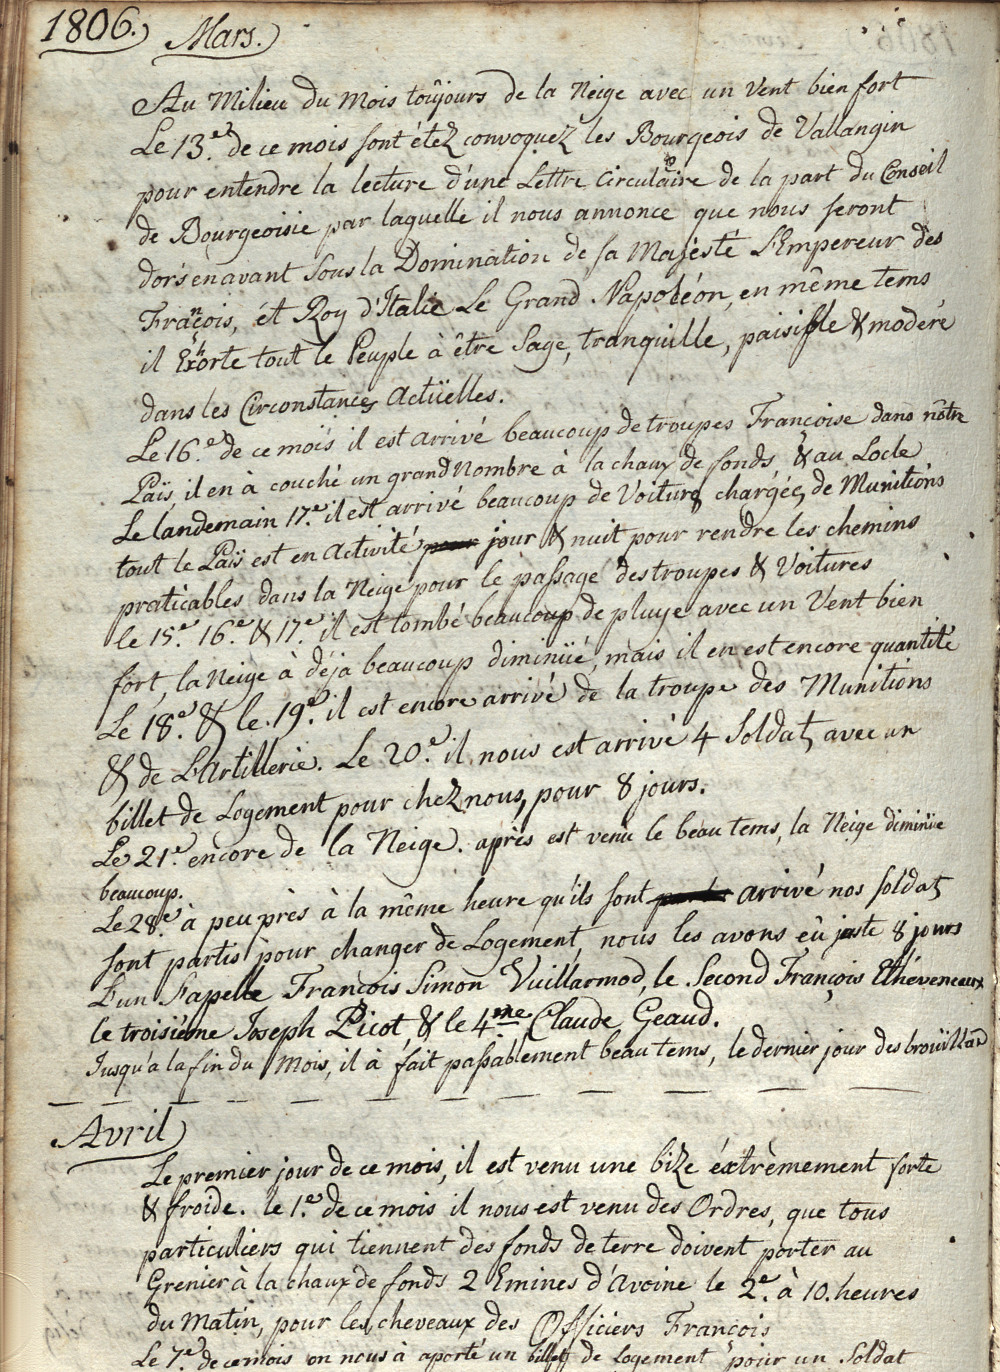 1806. Mars.
Au Milieu du Mois toûjours de la Neige avec un Vent bien fort
Le 13.e de ce mois sont étez convoquez les Bourgeois de Vallangin
pour entendre la lecture d'une Lettre Circulaire de la part du Conseil
de Bourgeoisie par laquelle il nous annonce que nous seront
dorsenavant sous la Domination de sa Majesté L'Empereur des
François, ét Roy d'Italie Le Grand Napoléon, en même tems
il Exhorte tout le Peuple à être Sage, tranquille, paisible & modéré
dans les Circonstances Actüelles.
Le 16.e de ce mois il est arrivé beaucoup de troupes Françoise dans nôtre
Païs, il en à couché un grand Nombre à la chaux de fonds, & au Locle
Le landemain 17.e il est arrivé beaucoup de Voitures chargées de Munitions
tout le Païs est en Activité jour & nuit pour rendre les chemins
praticables dans la Neige pour le passage des troupes & Voitures
le 15.e 16.e & 17.e il est tombé beaucoup de pluye avec un Vent bien
fort, la Neige à déja beaucoup diminüé, mais il en est encore quantité
Le 18.e & le 19.e il est encore arrivé de la troupe des Munitions
& de L'Artillerie. Le 20.e il nous est arrivé 4 Soldats avec un
billet de Logement pour chez nous, pour 8 jours.
Le 21.e encore de la Neige. après est venu le beau tems, la Neige diminüe
beaucoup.
Le 28.e à peu près à la même heure qu'ils sont arrivé nos soldats
sont partis pour changer de Logement, nous les avons eû juste 8 jours
L'un s'apelle François Simon Vuillarmod, le Second François Ethéveneaux
le troisième Joseph Picot, & le 4.me Claude Geaud.
Jusqu'a la fin du Mois, il à fait passablement beau tems, le dernier jour des broüillard
Avril
Le premier jour de ce mois, il est venu une bize éxtrèmement forte
& froide. le 1.e de ce mois il nous est venu des Ordres, que tous
particuliers qui tiennent des fonds de terre doivent porter au
Grenier à la chaux de fonds 2 Emines d'Avoine le 2.e à 10. heures
du Matin, pour les cheveaux des Officiers François
Le 7.e de ce mois on nous à aporté un billet de Logement pour un Soldat